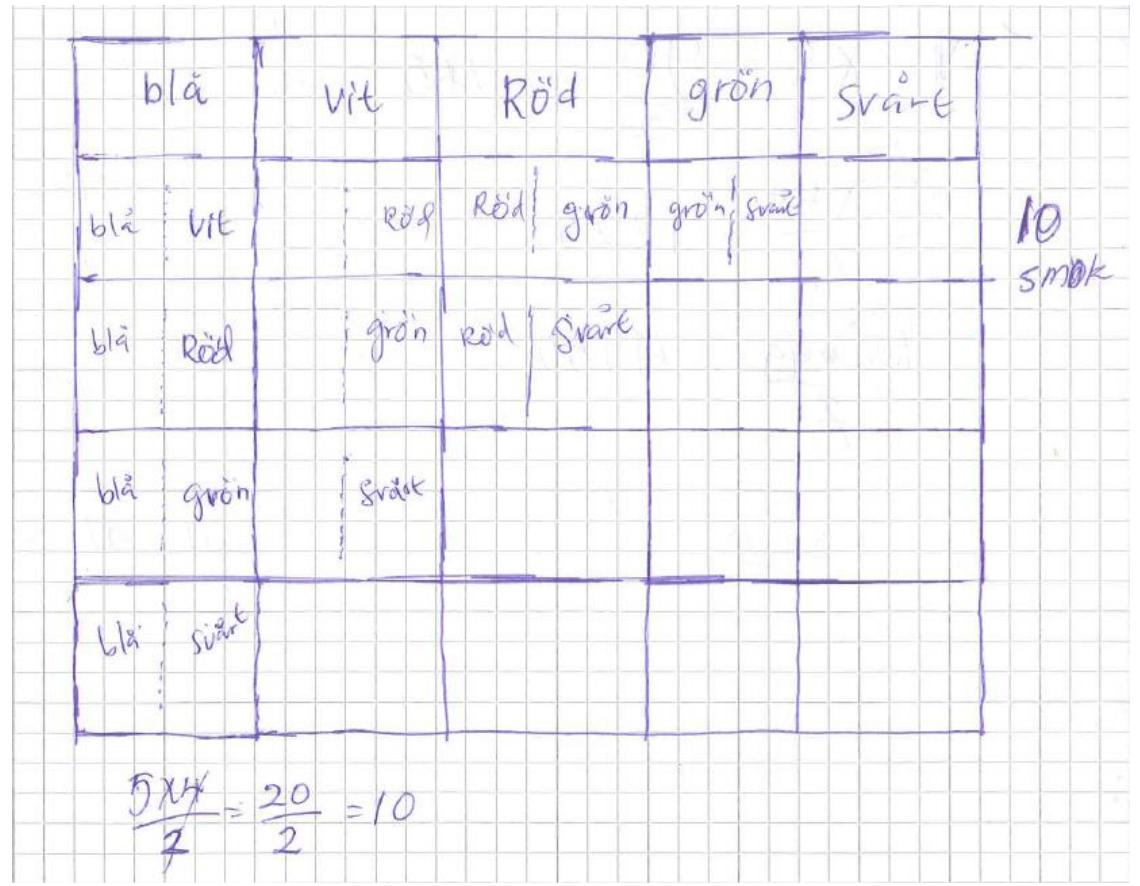 blå vit Röd grön Svårt
blå vit Röd Röd grön grön svårt
10
smak
blå Röd grön Röd Svårt
blå grön Svårt
blå svårt
5x4/2 = 20/2 = 10